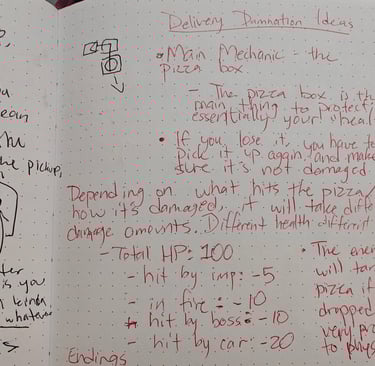 Delivery Damnation Ideas
• Main Mechanic - the
pizza box
- The pizza box is the
main thing to protect
essentially your heal
• If you lose it, you have to
pick it up again, and make
sure it's not damaged.
Depending on what hits the pizza/
how it's damaged, it will take diffe
damage amounts. Different health different
- Total HP: 100
- hit by imp: -5
- in fire: -10
- hit by boss: -10
- hit by car: -20
Endings
• The ene
will tar
pizza if
dropped
very p
to phys
ean
the
he pickup,
ter
is you
kinda
whatever
s